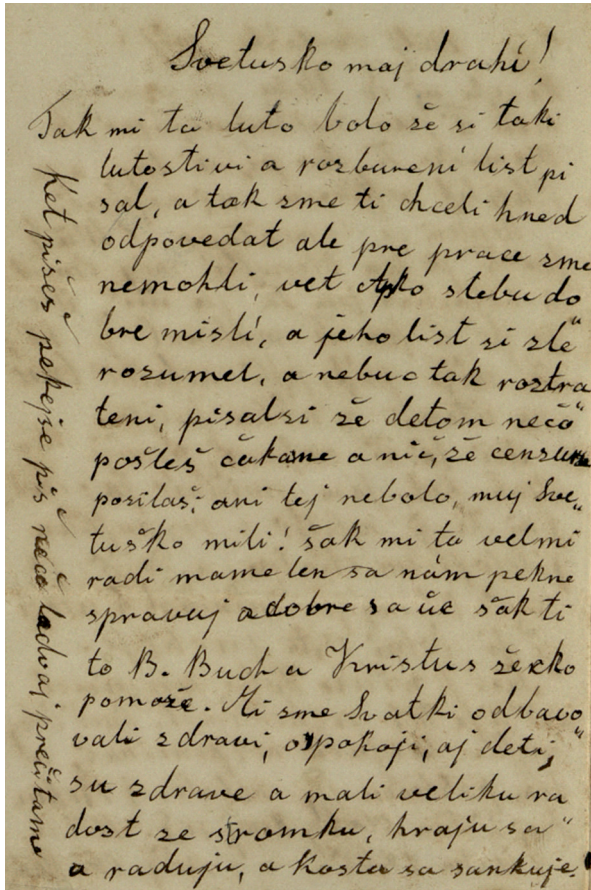 Svetusko moj drahí!
Tak mi ta luto bolo že si taki
lutostivi a rozburení list pi
sal, a tak sme ti chceli hned
odpovedat ale pre prace sme
nemohli, vet otko stebu do
bre mislí, a jeho list si zle
rozumel, a nebuc tak roztra
teni, pisalsi že detom nečo"
pošleš čakame a nič, že censure
posilaš; ani tej nebolo, muj Sve„
tuško mili! šak mi ta velmi
radi mame len sa nám pekne
spravuj a dobre sa uč šak ti
to B. Buch a Kristus žecko
pomože. Mi sme Svatki odbavo
vali zdravi, o pokoji, aj deti,"
su zdrave a mali veliku ra
dost ze stromku, hraju sa"
a raduju, a Kosta sa sankuje.
Ket pišeš pekejše piš nečo ledvaj prečitame